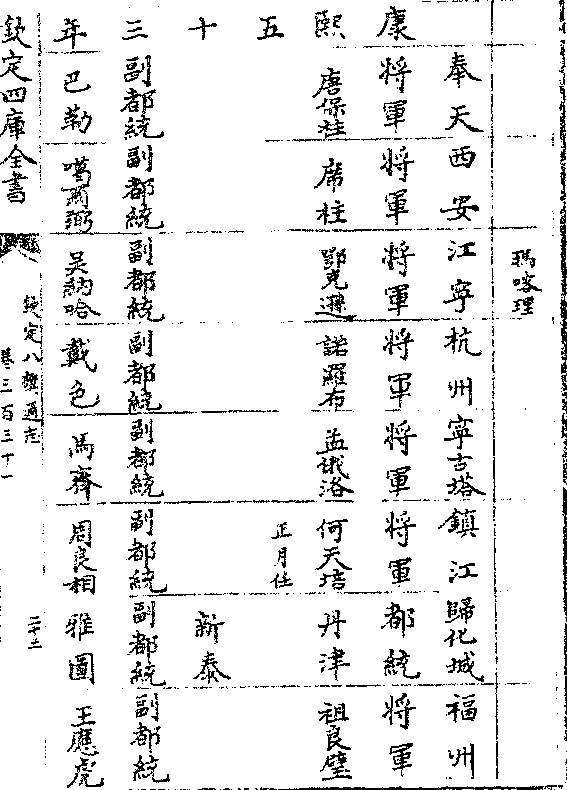 瑪喀理
奉天 西安 江寧 杭州 寧古塔 鎮江 歸化城 福州
康 將軍 將軍 將軍 將軍 將軍 將軍 都統 將軍
熙 唐保柱 席柱 鄂克遜 諾羅布 孟俄洛 何天培 丹津 祖良璧
五 正月任
十 新泰
三 副都統 副都統 副都統 副都統 副都統 副都統 副都統 副都統
年 巴勒 噶爾弼 吳納哈 戴色 馬齊 周良相 雅圖 王應虎
欽定四庫全書
欽定八旗通志
卷三百三十一